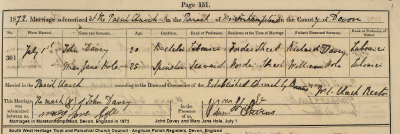 Page 151.
1873. Marriage solemnized at the Parish Church in the Parish of Moretonhampstead in the County of Devon
No. When Married. Name and Surname. Age. Condition. Rank or Profession. Residence at the Time of Marriage. Father's Name and Surname. Rank or Profession of Father.
301 July 1st John Davey 20 Bachelor Labourer Forder Street Richard Davey Labourer
Mary Jane Hole 25 Spinster Servant Forder Street William Hole Labourer
Married in the Parish Church according to the Rites and Ceremonies of the Established Church by Banns by me,
This Marriage was solemnized between us, The mark X of John Davey
Mary Jane Hole
in the Presence of us,
Marriages in Moretonhampstead, Devon, England in 1873 John Davey and Mary Jane Hole, July 1
South West Heritage Trust and Parochial Church Council - Anglican Parish Registers, Devon, England